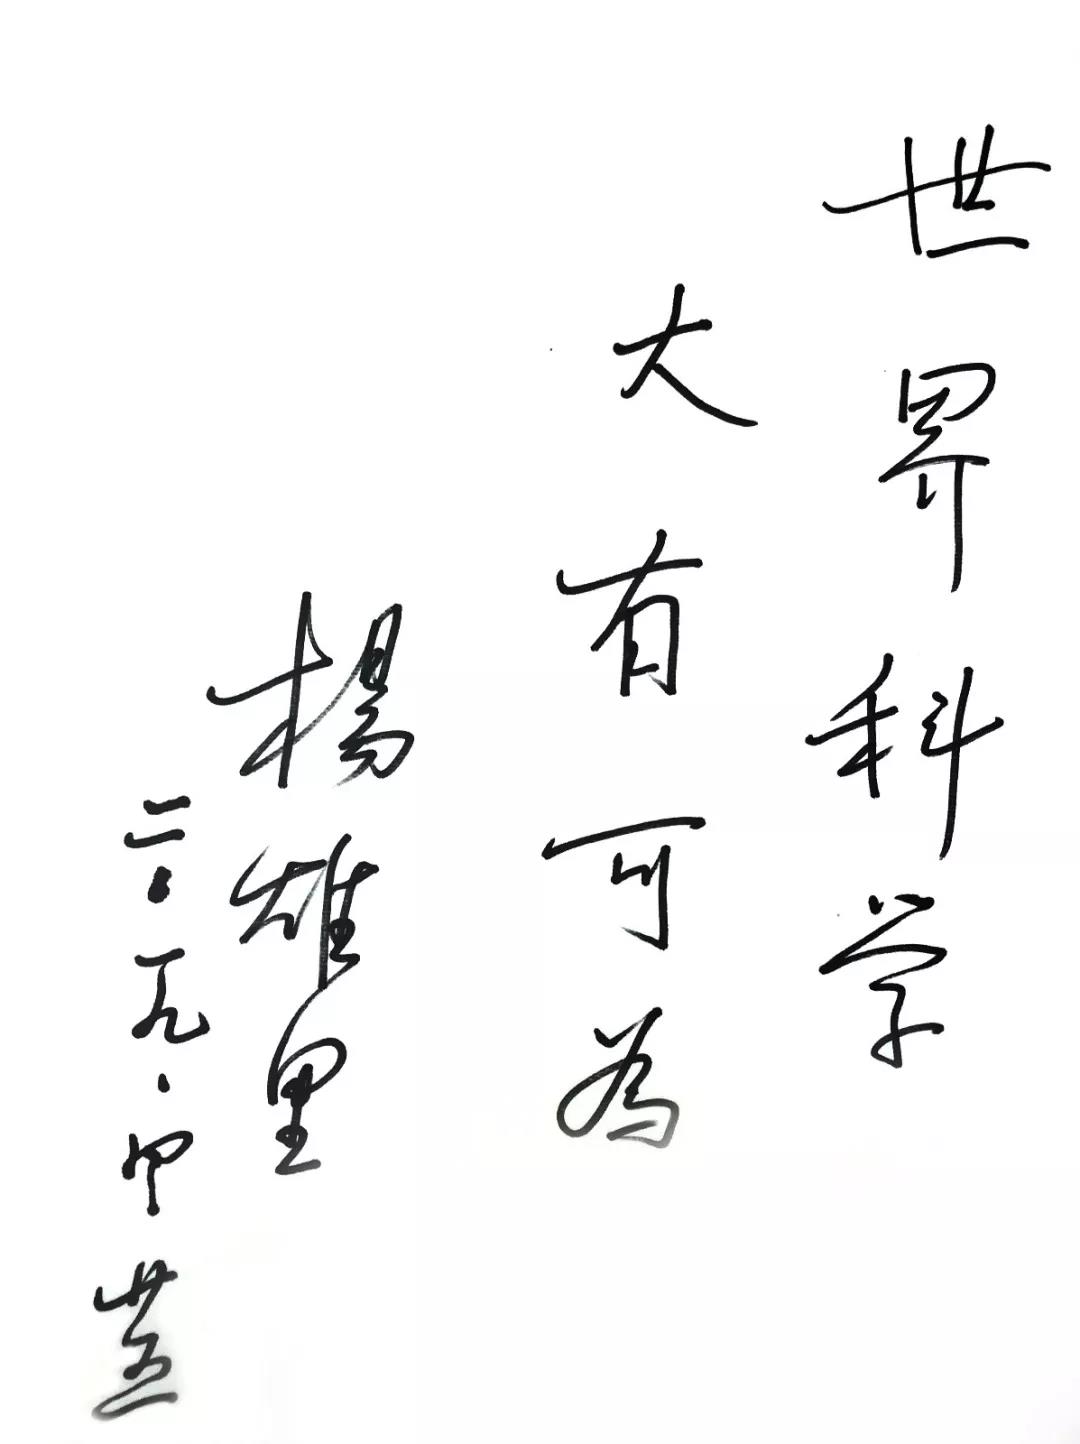 世界科学
大有可为
楊雄里
二〇一九·